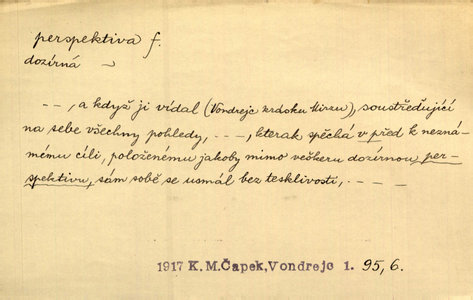 perspektiva f.
dozírná ~
– –, a když ji vídal (Vondrejc zrdsku Mirzu), soustřeďující
na sebe všechny pohledy, – –, kterak spěchá v před k nezná-
mému cíli, položenému jakoby mimo veškeru dozírnou per-
spektivu, sám sobě se usmál bez tesklivosti, – – –
1917 K.M.Čapek, Vondrejc 1. 95,6.